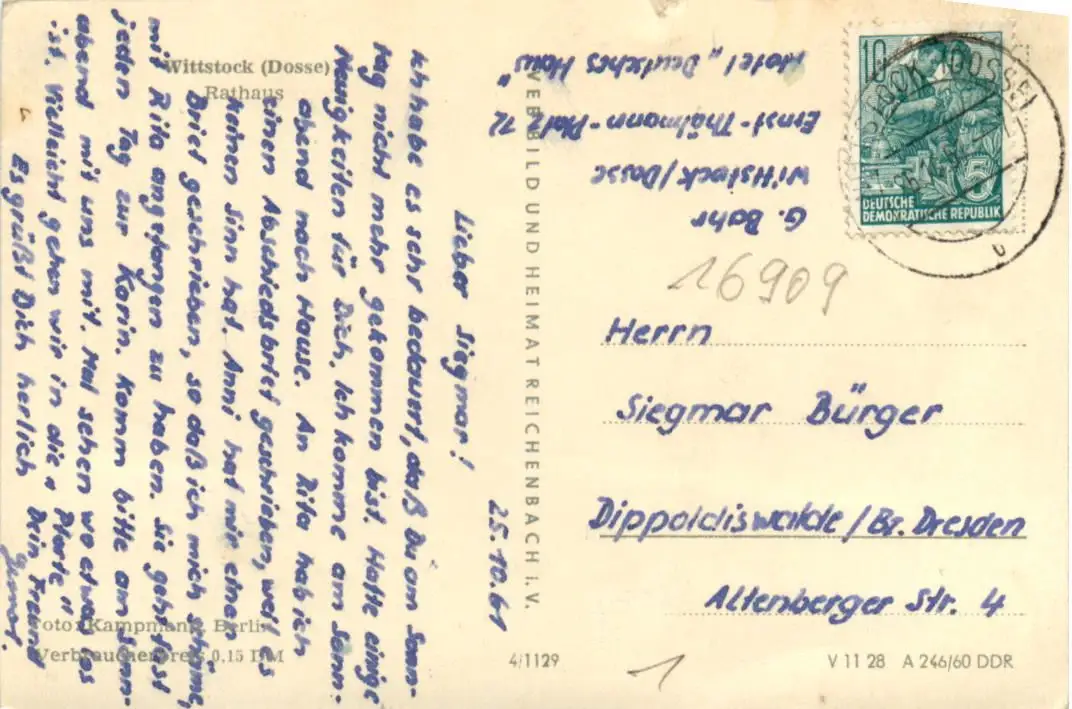 Wittstock (Dosse)
Rathaus
25.10.61
Lieber Siegmar!
Ich habe es sehr bedauert, daß Du am Sonn-
tag nicht mehr gekommen bist. Hatte einige
Neuigkeiten für Dich. Ich komme am Sonn-
abend nach Hause. An Rita hab ich
einen Abschiedsbrief geschrieben, weil es
keinen Sinn hat. Anni hat mir einen
Brief geschrieben, so daß ich mich schäme,
mit Rita angefangen zu haben. Sie geht fast
jeden Tag zur Karin. Komm bitte am Sonn-
abend mit uns mit. Mal sehen wo etwas los
ist. Vielleicht gehen wir in die "Pforte"
Es grüßt Dich herlich Dein Freund
Foto: Kampmann, Berlin
Verbraucherpreis 0,15 DM
VEB BILD UND HEIMAT REICHENBACH i. V.
G. Bahr
Wittstock/Dosse
Ernst-Thälmann-Platz 12
Hotel „Deutsches Haus"
10
5
DEUTSCHE
DEMOKRATISCHE REPUBLIK
DOSSE
b
16909
Herrn
Siegmar Bürger
Dippoldiswalde/Bz. Dresden
Altenberger Str. 4
4/1129
1
V 11 28 A 246/60 DDR